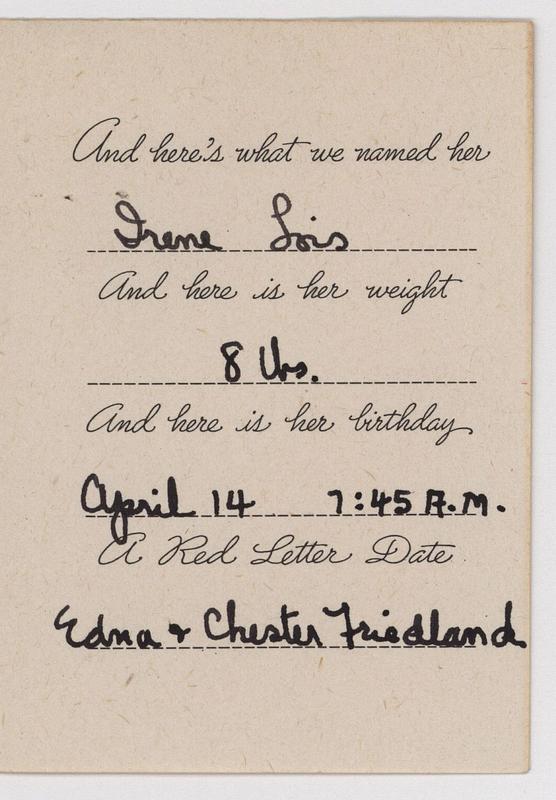 And here's what we named her
Irene Lois
And here is her weight
8 lbs.
And here is her birthday
April 14 7:45 A.M.
A Red Letter Date
Edna & Chester Friedland